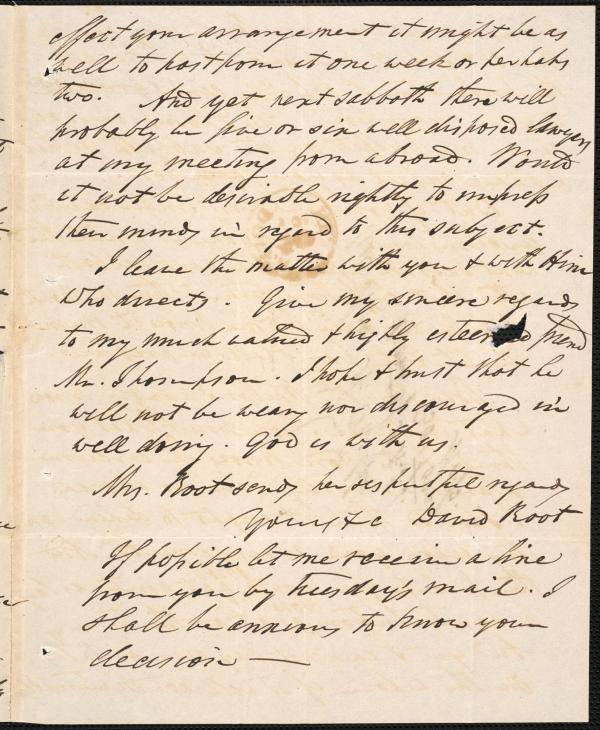 effect your arrangement it might be as
well to postpone it one week or perhaps
two. And yet next sabbath there will
probably be five or six well disposed lawyers
at my meeting from abroad. Would
it not be desirable rightly to impress
their minds in regard to this subject.
I leave the matter with you & with Him
who directs. Give my sincere regards
to my much valued & highly esteemed friend
Mr. Thompson. I hope & trust that he
will not be weary nor discouraged in
well doing. God is with us.
Mrs. Root sends her respectful regards
Yours &c David Root
If possible let me receive a line
from you by Tuesday's mail. I
shall be anxious to know your
decision —